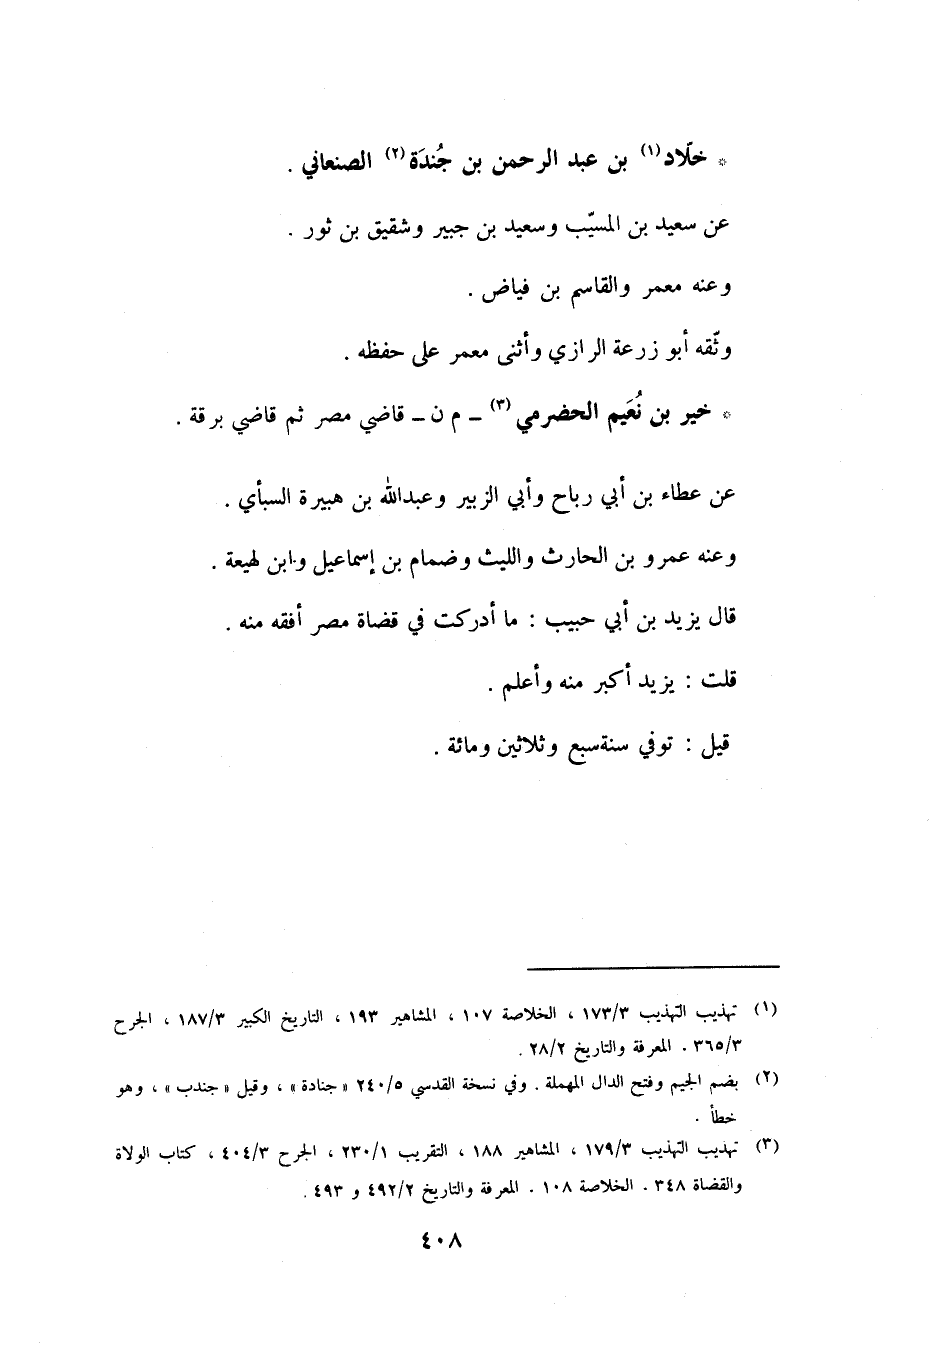 * خلّاد(١) بن عبد الرحمن بن جُندَة(٢) الصنعاني .
عن سعيد بن المسيّب وسعيد بن جبير وشقيق بن ثور .
وعنه معمر والقاسم بن فياض .
وثّقه أبو زرعة الرازي وأثنى معمر على حفظه .
* خير بن نُعَيم الحضرمي(٣) ـ م ن ـ قاضي مصر ثم قاضي برقة .
عن عطاء بن أبي رباح وأبي الزبير وعبدالله بن هبيرة السبأي .
وعنه عمرو بن الحارث والليث وضمام بن إسماعيل وابن لهيعة .
قال يزيد بن أبي حبيب : ما أدركت في قضاة مصر أفقه منه .
قلت : يزيد أكبر منه وأعلم .
قيل : توفي سنةسبع وثلاثين ومائة .
(١) تهذيب التهذيب ١٧٣/٣ ، الخلاصة ١٠٧ ، المشاهير ١٩٣ ، التاريخ الكبير ١٨٧/٣ ، الجرح
٣٦٥/٣ . المعرفة والتاريخ ٢٨/٢ .
(٢) بضم الجيم وفتح الدال المهملة . وفي نسخة القدسي ٢٤٠/٥ «جنادة» ، وقيل «جندب» ، وهو
خطأ .
(٣) تهذيب التهذيب ١٧٩/٣ ، المشاهير ١٨٨ ، التقريب ٢٣٠/١ ، الجرح ٤٠٤/٣ ، كتاب الولاة
والقضاة ٣٤٨ . الخلاصة ١٠٨ . المعرفة والتاريخ ٤٩٢/٢ و ٤٩٣ .
٤٠٨